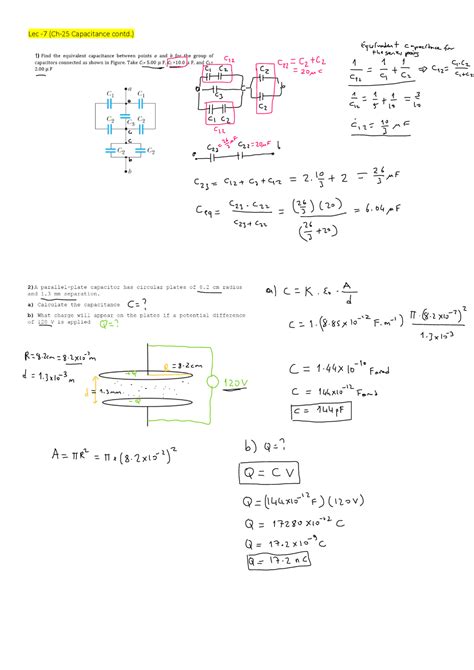 Lec -7 (Ch-25 Capacitance contd.)
1) Find the equivalent capacitance between points a and b for the group of
capacitors connected as shown in Figure. Take C₁= 5.00 μ F, C₂ =10.0 μ F, and C₃=
2.00 μ F
a
C₁ C₁
C₂ C₃ C₂
C₂ C₂
b
C₁₂
C₁ C₂
C₃
C₁ C₂
C₁₂
a
b
C₂
C₂
C₂₂ = C₂+C₂
= 20μC
Equivalent capacitance for
1/C₁₂ = 1/C₁ + 1/C₂ ⇒ C₁₂ = C₁·C₂/C₁+C₂
1/C₁₂ = 1/5 + 1/10 = 3/10
C₁₂ = 10/3 μF
a C₂₃ = 26/3 μF C₂₂ = 20μF b
C₂₃ = C₁₂ + C₃ + C₁₂ = 2·10/3 + 2 = 26/3 μF
Ceq = C₂₃·C₂₂/C₂₃+C₂₂ = (26/3)(20)/(26/3+20) = 6.04 μF
2)A parallel-plate capacitor has circular plates of 8.2 cm radius
and 1.3 mm separation.
a) Calculate the capacitance C=?
b) What charge will appear on the plates if a potential difference
of 120 V is applied Q=?
R=8.2cm = 8.2×10⁻²m
d = 1.3×10⁻³ m
R=8.2cm
d = 1.3mm
120V
A = πR² = π*(8.2×10⁻²)²
a) C = K·ε₀·A/d
C = 1·(8.85×10⁻¹² F·m⁻¹) π·(8.2×10⁻²)²/1.3×10⁻³
C = 1.44×10⁻¹⁰ Farad
C = 144×10⁻¹² Farad
C = 144 pF
b) Q=?
Q = C V
Q = (144×10⁻¹² F)(120V)
Q = 17280×10⁻¹² C
Q = 17.2×10⁻⁹ C
Q = 17.2 nC